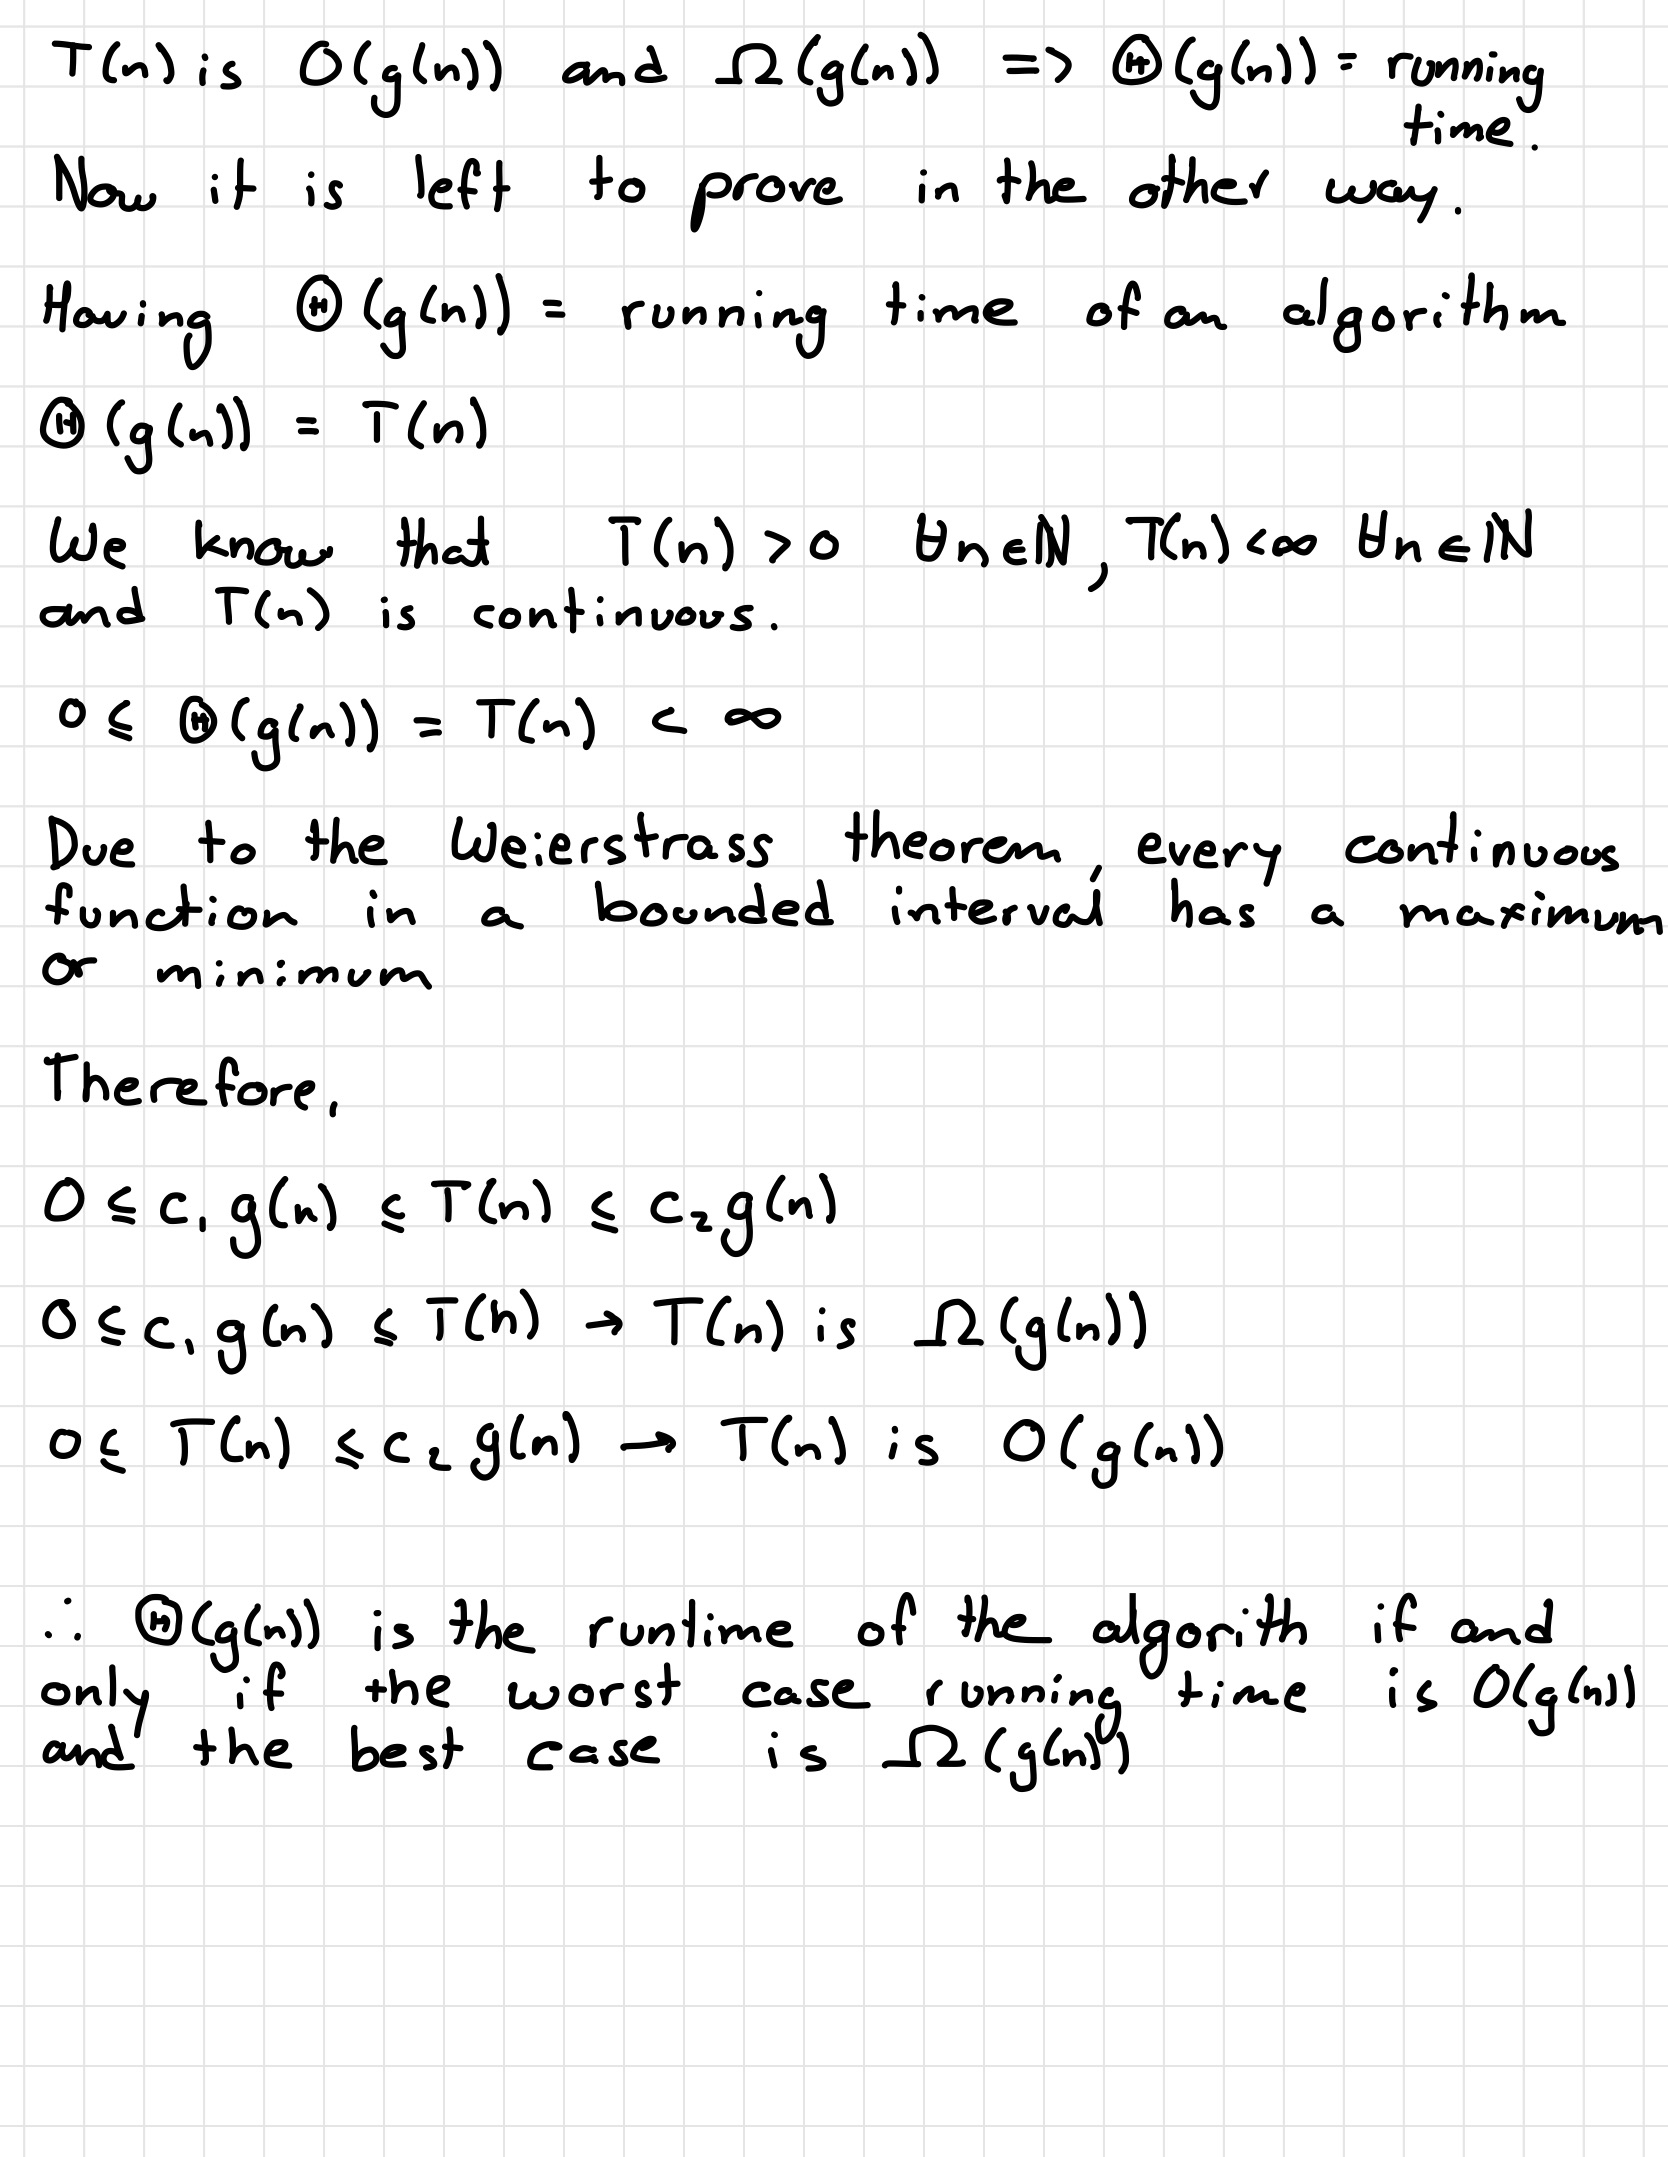 T(n) is O(g(n)) and Ω(g(n)) => Θ(g(n)) = running
time.
Now it is left to prove in the other way.
Having Θ(g(n)) = running time of an algorithm
Θ(g(n)) = T(n)
We know that T(n) > 0 ∀n∈ℕ, T(n) < ∞ ∀n∈ℕ
and T(n) is continuous.
0 ≤ Θ(g(n)) = T(n) < ∞
Due to the Weierstrass theorem, every continuous
function in a bounded interval has a maximum
or minimum
Therefore,
0 ≤ c₁g(n) ≤ T(n) ≤ c₂g(n)
0 ≤ c₁g(n) ≤ T(n) → T(n) is Ω(g(n))
0 ≤ T(n) ≤ c₂g(n) → T(n) is O(g(n))
∴ Θ(g(n)) is the runtime of the algorith if and
only if the worst case running time is O(g(n))
and the best case is Ω(g(n))